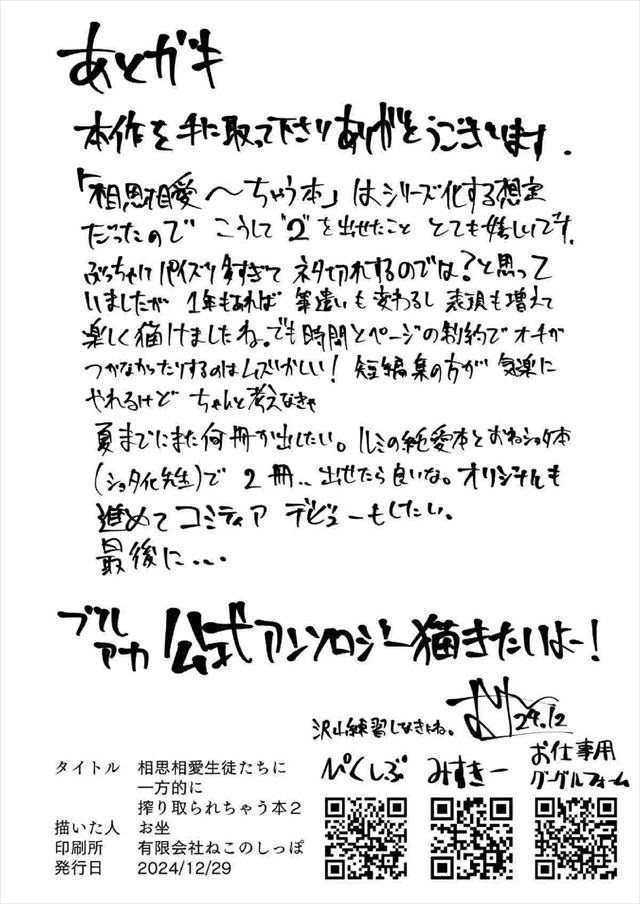 あとがき
本作を手に取って下さりありがとうございます。
「相思相愛〜ちゃう本」はシリーズ化する想定
だったので こうして"2"を出せたこと とても嬉しいです。
ぶっちゃけパイズリ多すぎてネタ切れするのでは?と思って
いましたが 1年もあれば 筆遣いも変わるし 表現も増えて
楽しく描けましたね。でも時間とページの制約でオチが
つかなかったりするのはムズかしい! 短編集の方が 気楽に
やれるけど ちゃんと考えなきゃ
夏までにまた何冊か出したい。ルミの純愛本とおねショタ本
(ショタ化先生)で 2冊..出せたら良いな。オリジナルも
進めてコミティア デビューもしたい。
最後に...
ブルアカ 公式アンソロジー描きたいよー!
沢山練習しなきゃね。
24.12
ぴくしぶ みすきー お仕事用
グーグルフォーム
タイトル 相思相愛生徒たちに
一方的に
搾り取られちゃう本2
描いた人 お坐
印刷所 有限会社ねこのしっぽ
発行日 2024/12/29